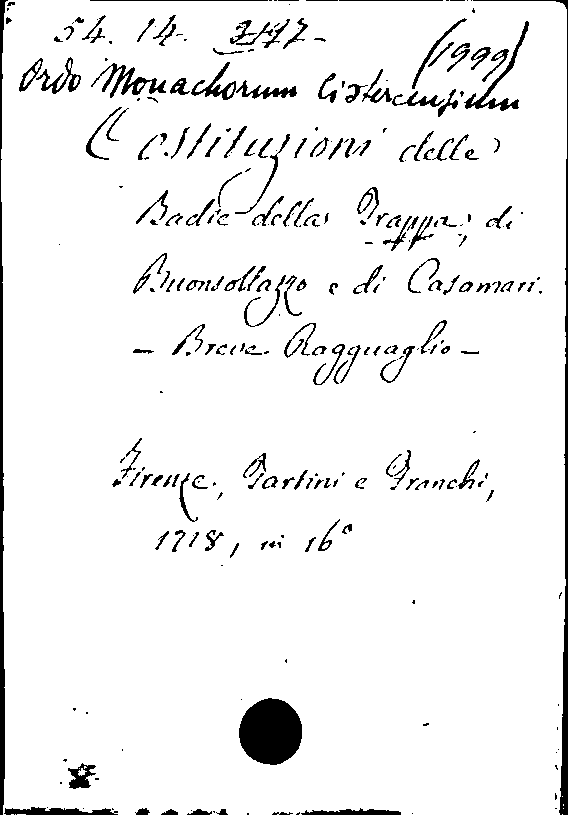 54. 14.
(1999)
Ordo Monachorum Cistercensium
Costituzioni delle
Badie della Trappa, di
Buonsollazzo e di Casamari.
— Breve Ragguaglio —
Firenze, Tartini e Franchi,
1718, in 16°